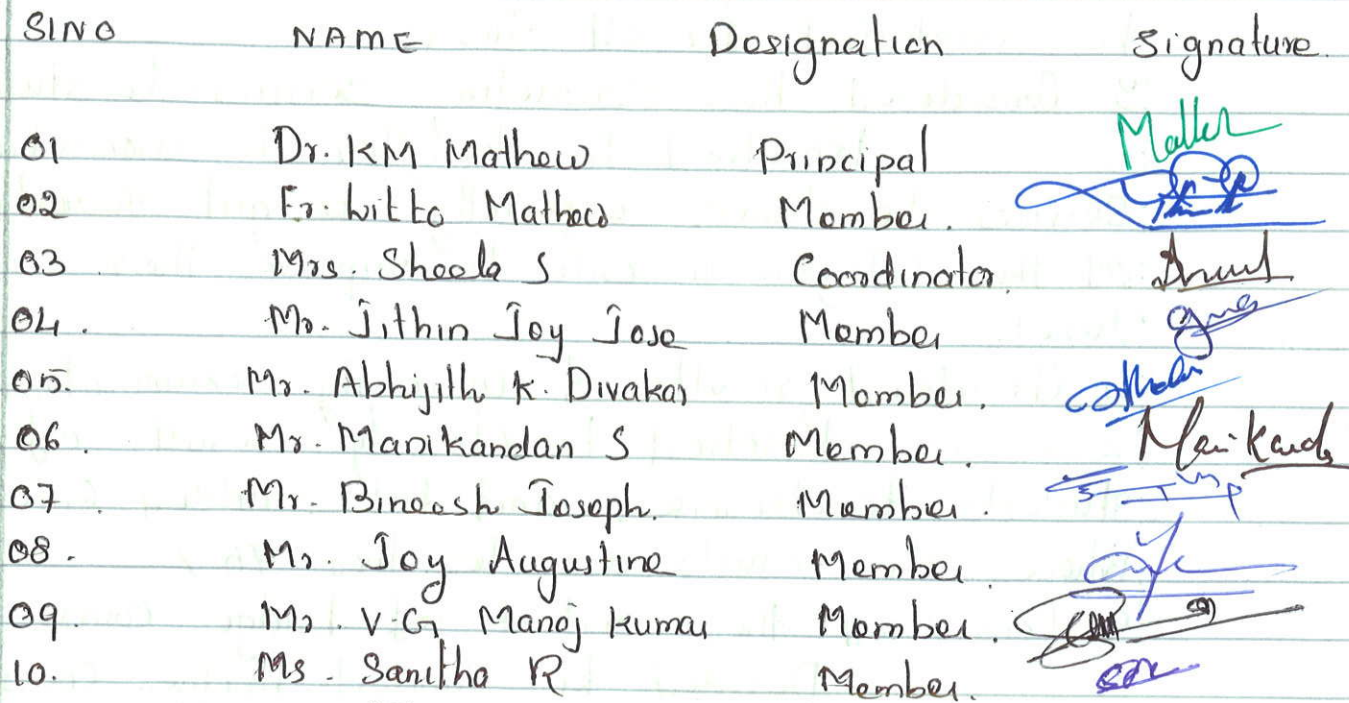 SINO NAME Designation Signature.
01 Dr. KM Mathew Principal
02 Fr. Mathew Member.
03 Mrs. Sheela S Coordinator.
04. Mr. Jithin Joy Jose Member
05. Mr. Abhijith K. Divakar Member.
06. Mr. Manikandan S Member. Manikanda
07. Mr. Bineesh Joseph. Member.
08. Mr. Joy Augustine Member.
09. Mr. V.G Manoj kumar Member.
10. Ms. Sanitha R Member.